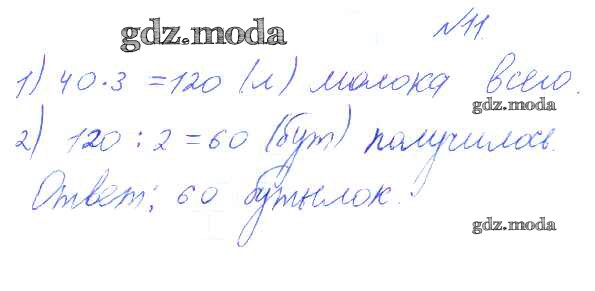 gdz.moda
№11.
1) 40·3 = 120 (л) молока всего.
gdz.moda
2) 120 : 2 = 60 (бут) получилось.
Ответ: 60 бутылок.
gdz.moda